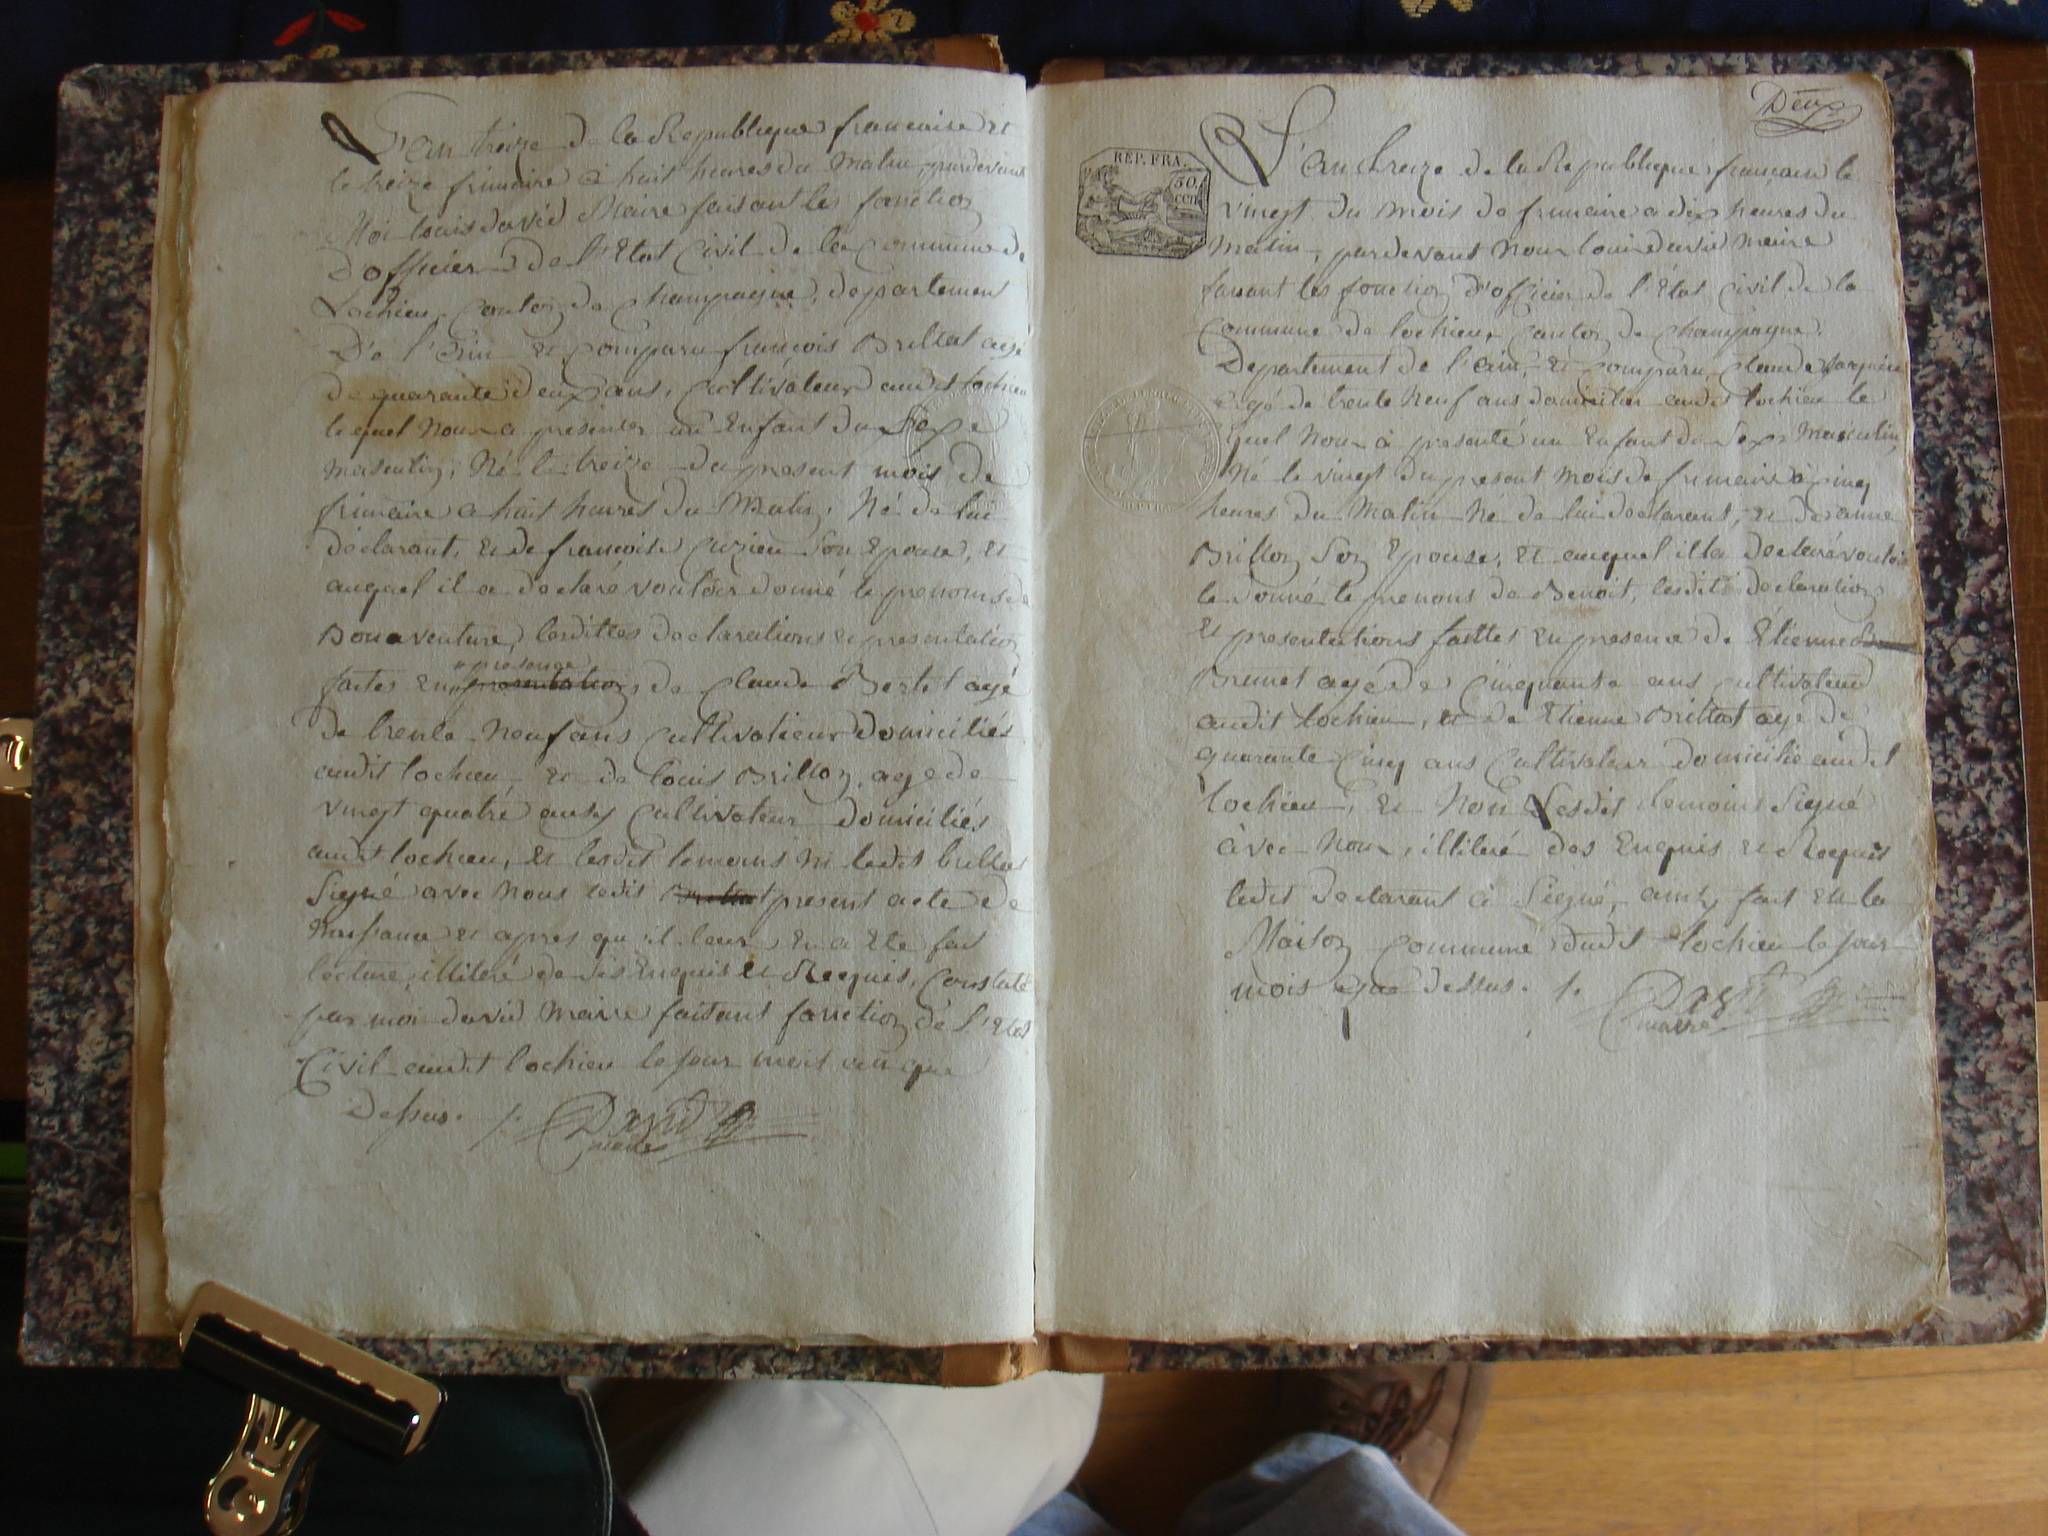 L'an treize de la Republique francaise et
le treize frimaire a huit heures du Matin, pardevant
Moi louis david Maire faisant les fonction
D'officier de l'Etat Civil de la commune de
Lochieu, Canton de Champagne, departement
De l'Ain et comparu francois Brillat agé
de quarante deux ans, Cultivateur audit lochieu
lequel Nous a presenter un Enfant du Sexe
masculin, Né le treize du present mois de
frimaire a huit heures du Matin, Né de lui
déclarant, et de francoise Son Epouse, et
auquel il a declaré vouloir donné le prenoms de
Bonaventure, lesdittes declarations et presentation
faites en presence de Claude Bertet agé
de trente Neuf ans Cultivateur domiciliés
audit lochieu et de louis Brillon, age de
vingt quatre ans Cultivateur domiciliés
audit lochieu, et lesdit temoins Ni ledit brillat
Signé avec Nous ledit present acte de
Naissance et apres qu'il leur en a Ete fait
lecture, illiteré de Enquis et Requis, Constaté
par moi david Maire faisant fonction de l'Etat
Civil audit lochieu le jour mois an que
Dessus. /. David
maire
Deux
REP. FRA.
50
CEN
L'an treize de la Republique française le
vingt du mois de frimaire a dix heures du
Matin, pardevant Nous louis david Maire
faisant les fonction d'officier de l'Etat Civil de la
Commune de lochieu, Canton de Champagne,
Departement de l'ain, et comparu Claude
agé de trente Neuf ans domicilier audit lochieu le
quel Nous à presenté un Enfant du Sexe Masculin
Né le vingt du present Mois de frimaire à cinq
heures du Matin Né de lui declarant, et de anne
Brillon Son Epouse, et auquel il la declaré vouloir
le donné le prenons de Benoit, lesdits declaration
et presentations faittes en presence de Etienne
Brunet age de Cinquante ans cultivateur
audit lochieu, et de Etienne Brillat age de
quarante Cinq ans Cultivateur domicilié audit
lochieu, et Non lesdit temoins Signé
avec Nous, illiteré des Enquis et Requis
ledit declarant a Signé, ainsy fait en la
Maison Commune dudit lochieu le jour
mois que dessus. /. David
maire